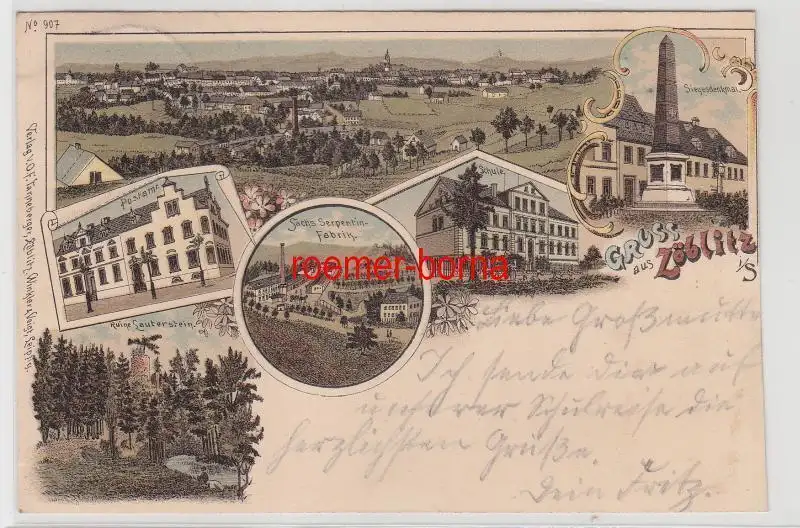 No 907
Siegesdenkmal
Postamt
Schule
Sächs. Serpentin-
Fabrik.
GRUSS
aus Zöblitz
i/S
Ruine Lauterstein.
roemer-borna
Liebe Großmutter
Ich sende dir auf
unserer Schulreise die
herzlichsten Grüße.
Dein Fritz.
Verlag v. O. F.